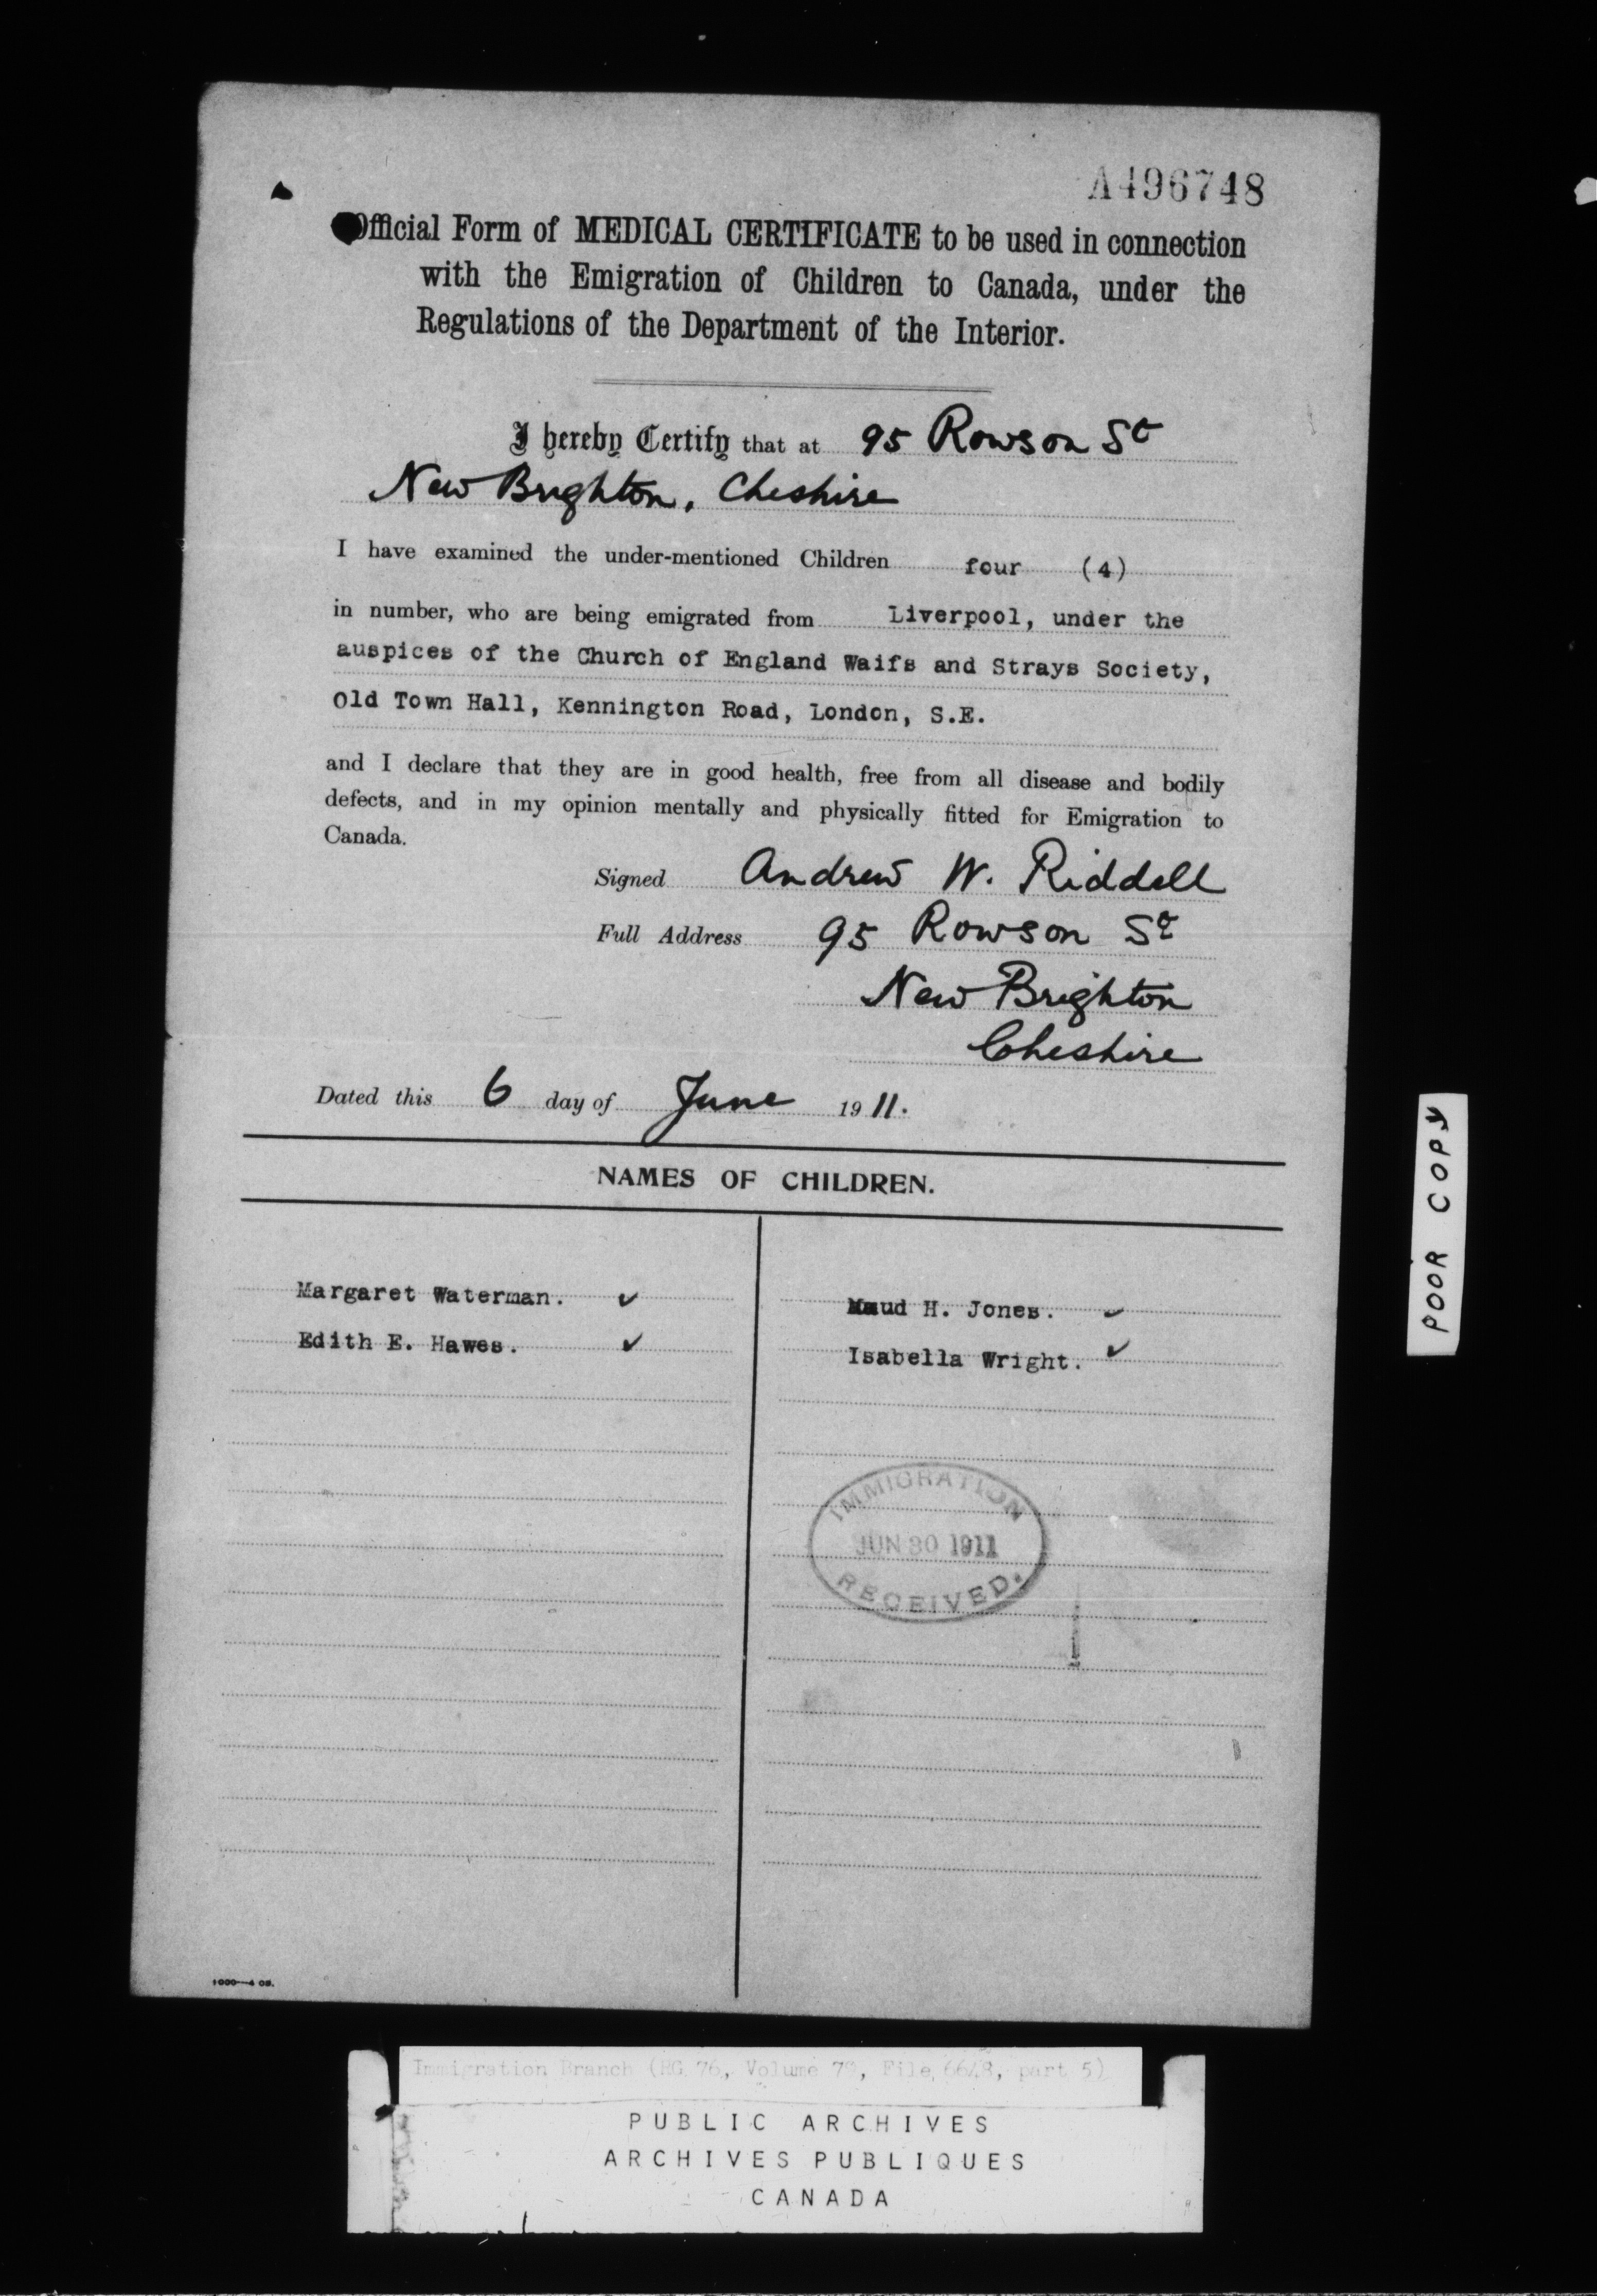 A496748
Official Form of MEDICAL CERTIFICATE to be used in connection
with the Emigration of Children to Canada, under the
Regulations of the Department of the Interior.
I hereby Certify that at 95 Rowson St
New Brighton, Cheshire
I have examined the under-mentioned Children four (4)
in number, who are being emigrated from Liverpool, under the
auspices of the Church of England Waifs and Strays Society,
Old Town Hall, Kennington Road, London, S.E.
and I declare that they are in good health, free from all disease and bodily
defects, and in my opinion mentally and physically fitted for Emigration to
Canada.
Signed Andrew W. Riddell
Full Address 95 Rowson St
New Brighton
Cheshire
Dated this 6 day of June 1911.
NAMES OF CHILDREN.
Margaret Waterman. ✓
Edith E. Hawes. ✓
Maud H. Jones. ✓
Isabella Wright. ✓
IMMIGRATION
JUN 30 1911
RECEIVED.
POOR COPY
Immigration Branch (RG 76, Volume, File, part 5)
PUBLIC ARCHIVES
ARCHIVES PUBLIQUES
CANADA